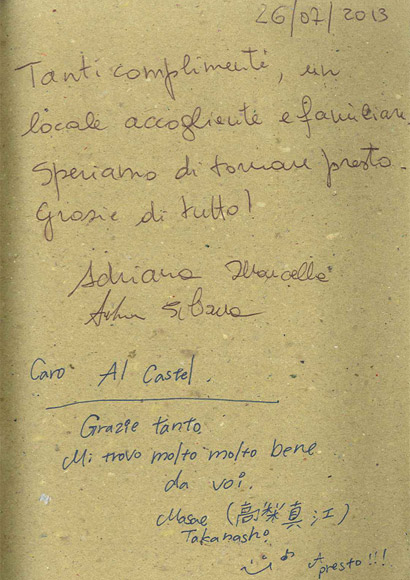 26/07/2013
Tanti complimenti, un
locale accogliente e familiare.
Speriamo di tornare presto.
Grazie di tutto!
Adriana
Silvana
Caro Al Castel.
Grazie tanto
Mi trovo molto molto bene
da voi.
Masae (高梨真江)
Takanashi
A presto!!!